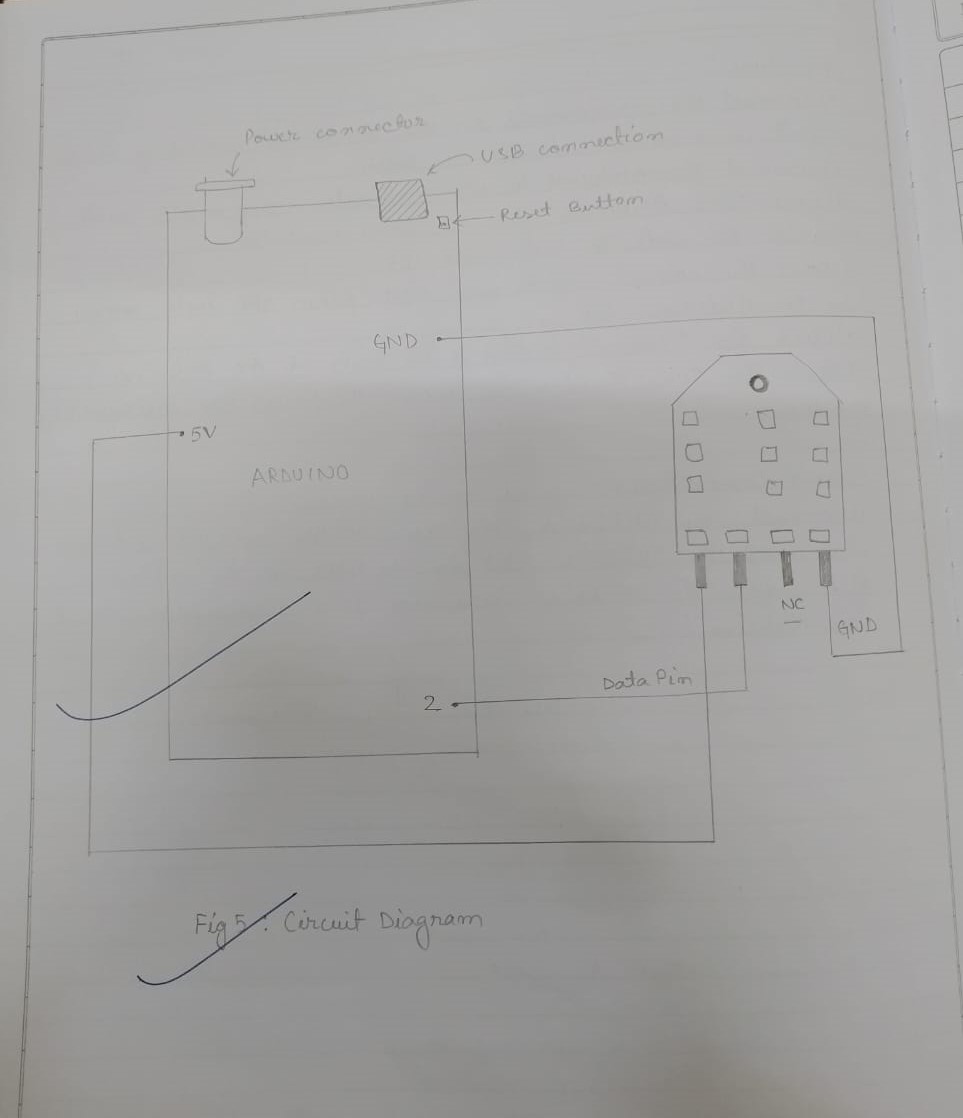 Power connector
USB connection
Reset Button
GND
5V
ARDUINO
NC
GND
Data Pin
2
Fig 5 : Circuit Diagram